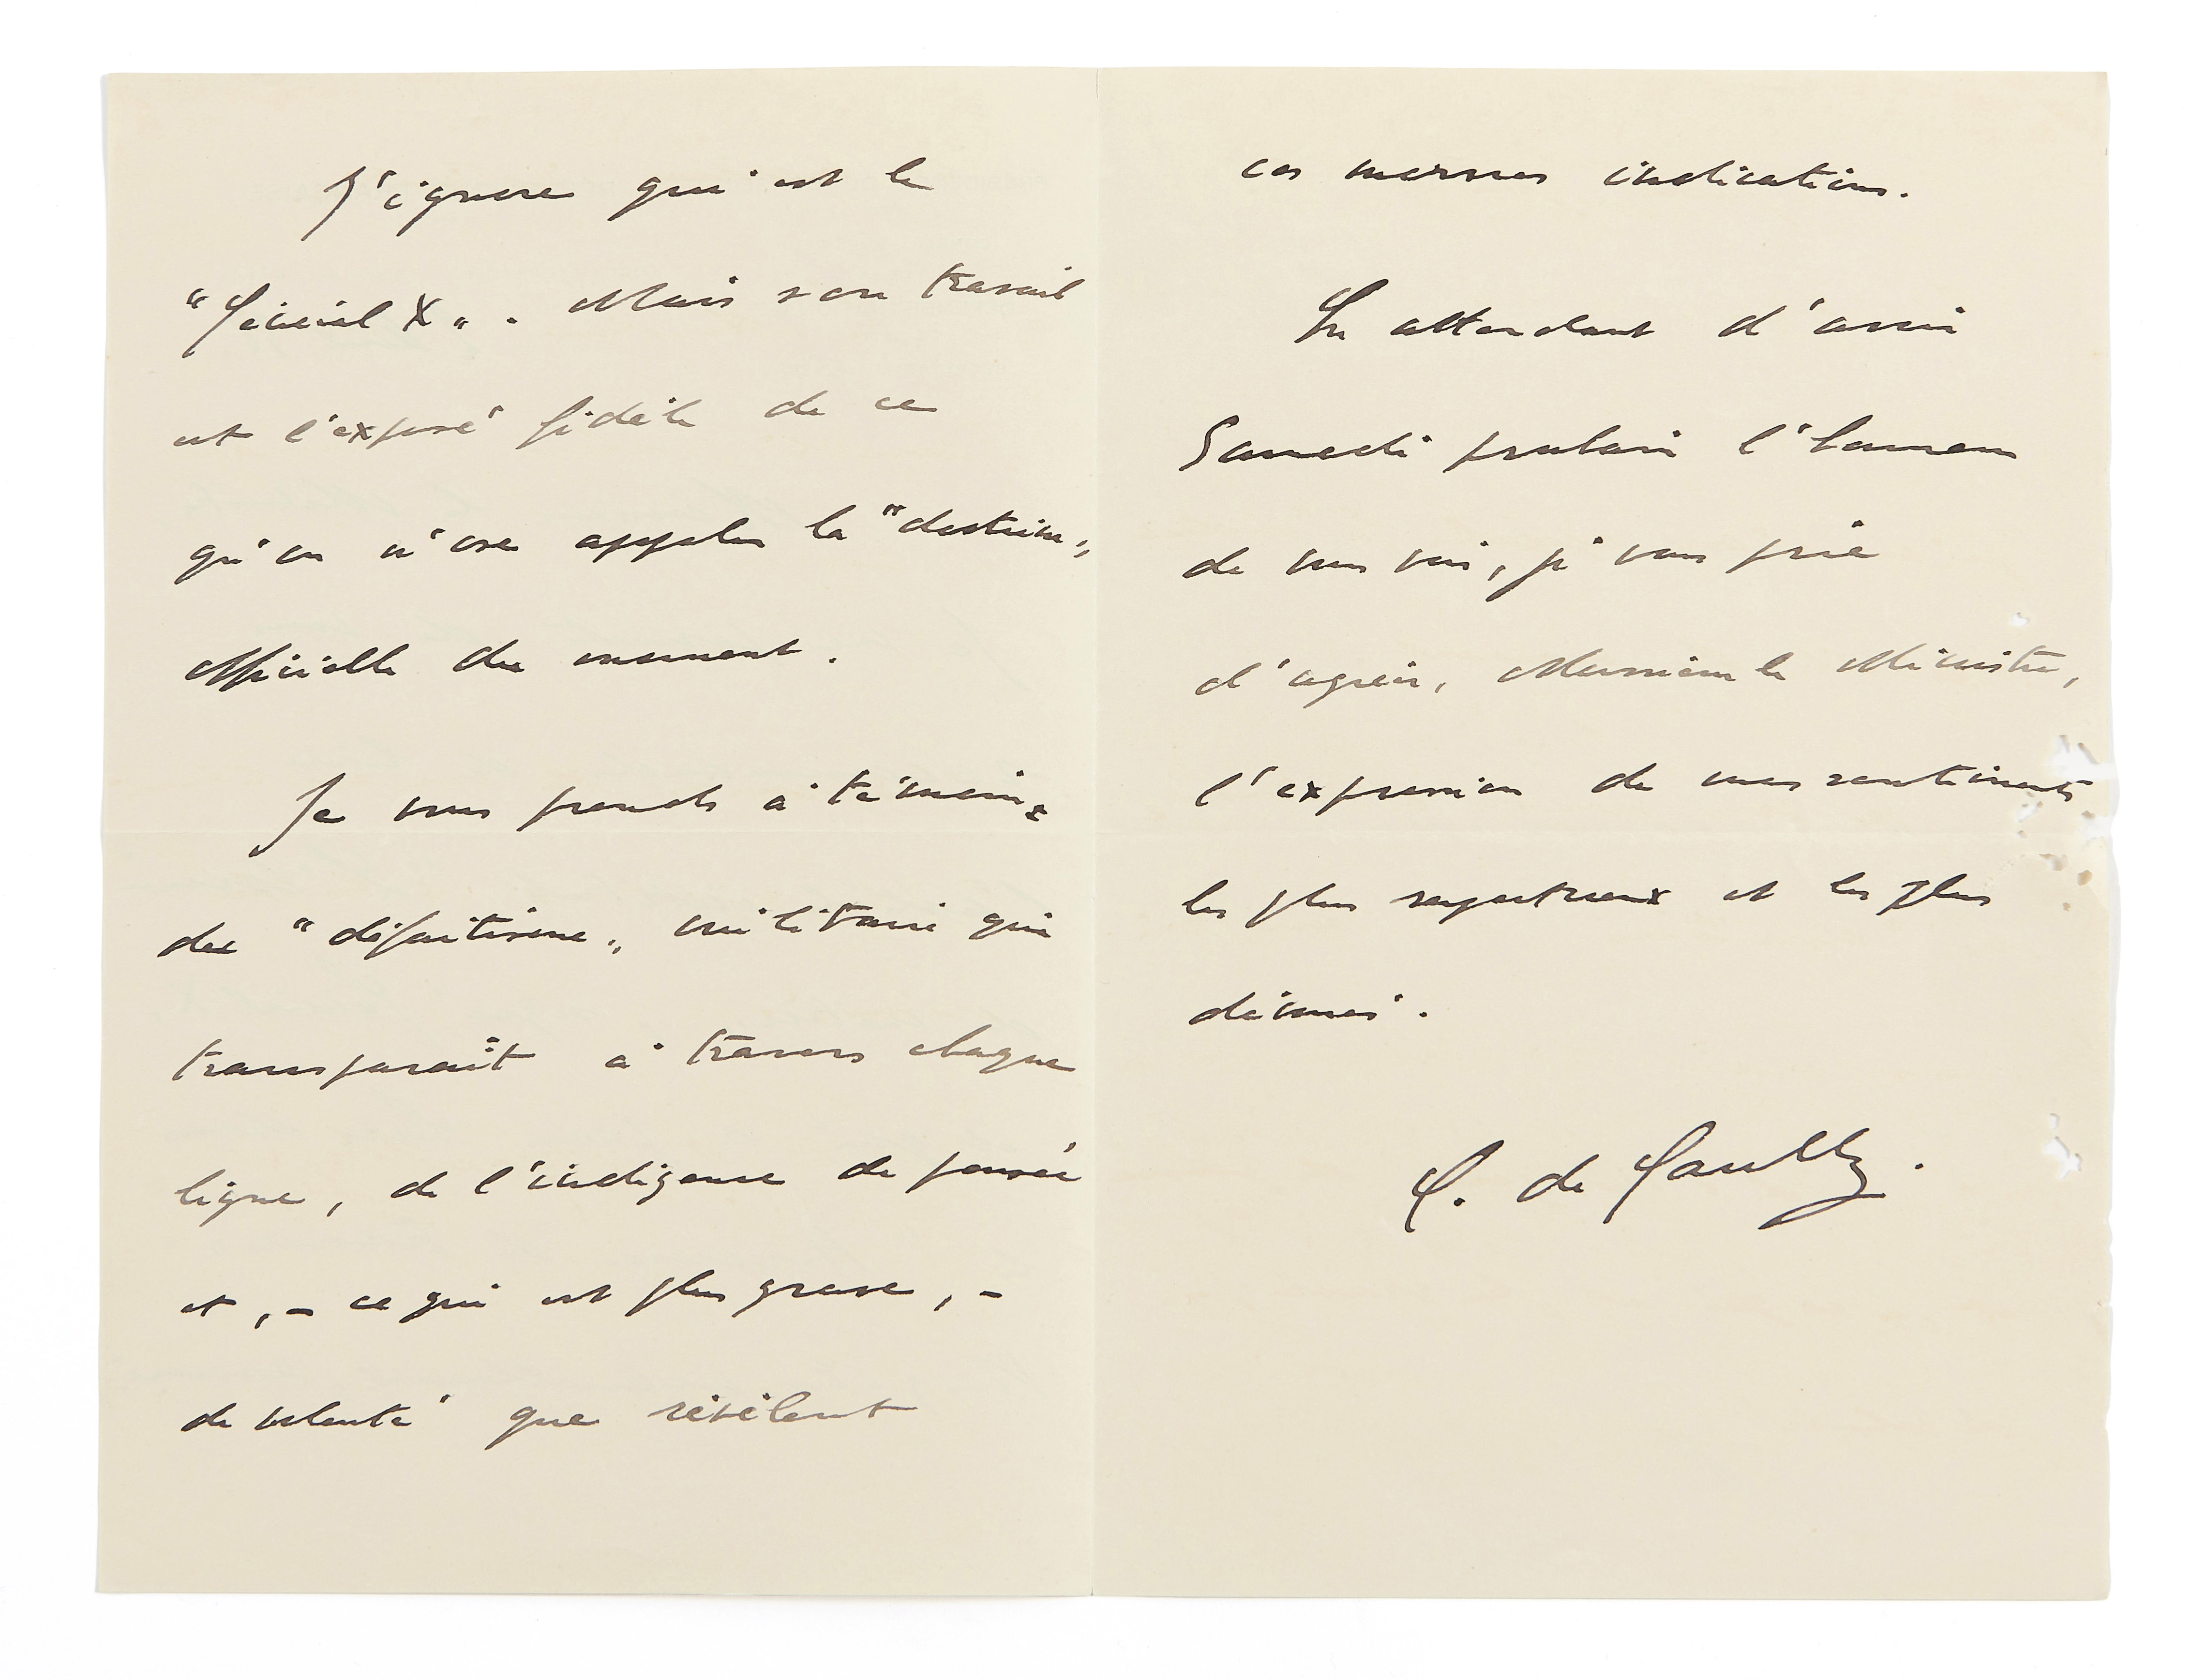 J'ignore qui est le
"Général X". Mais son travail
est l'exposé fidèle de ce
qu'on n'ose appeler la "doctrine"
officielle du moment.
Je vous prends à témoin
du "défaitisme" militaire qui
transparaît à travers chaque
ligne, de l'indigence de pensée
et, - ce qui est plus grave, -
de volonté que révèlent
ces mornes indications.
En attendant d'avoir
Samedi prochain l'honneur
de vous voir, je vous prie
d'agréer, Monsieur le Ministre,
l'expression de mes sentiments
les plus respectueux et les plus
dévoués.
C. de Gaulle.